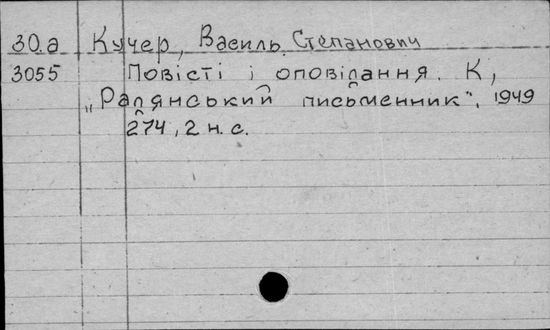 30.а Кучер, Василь Степанович
3055 Повісті і оповідання. К,
„Радянський письменник", 1949
274, 2 н. с.